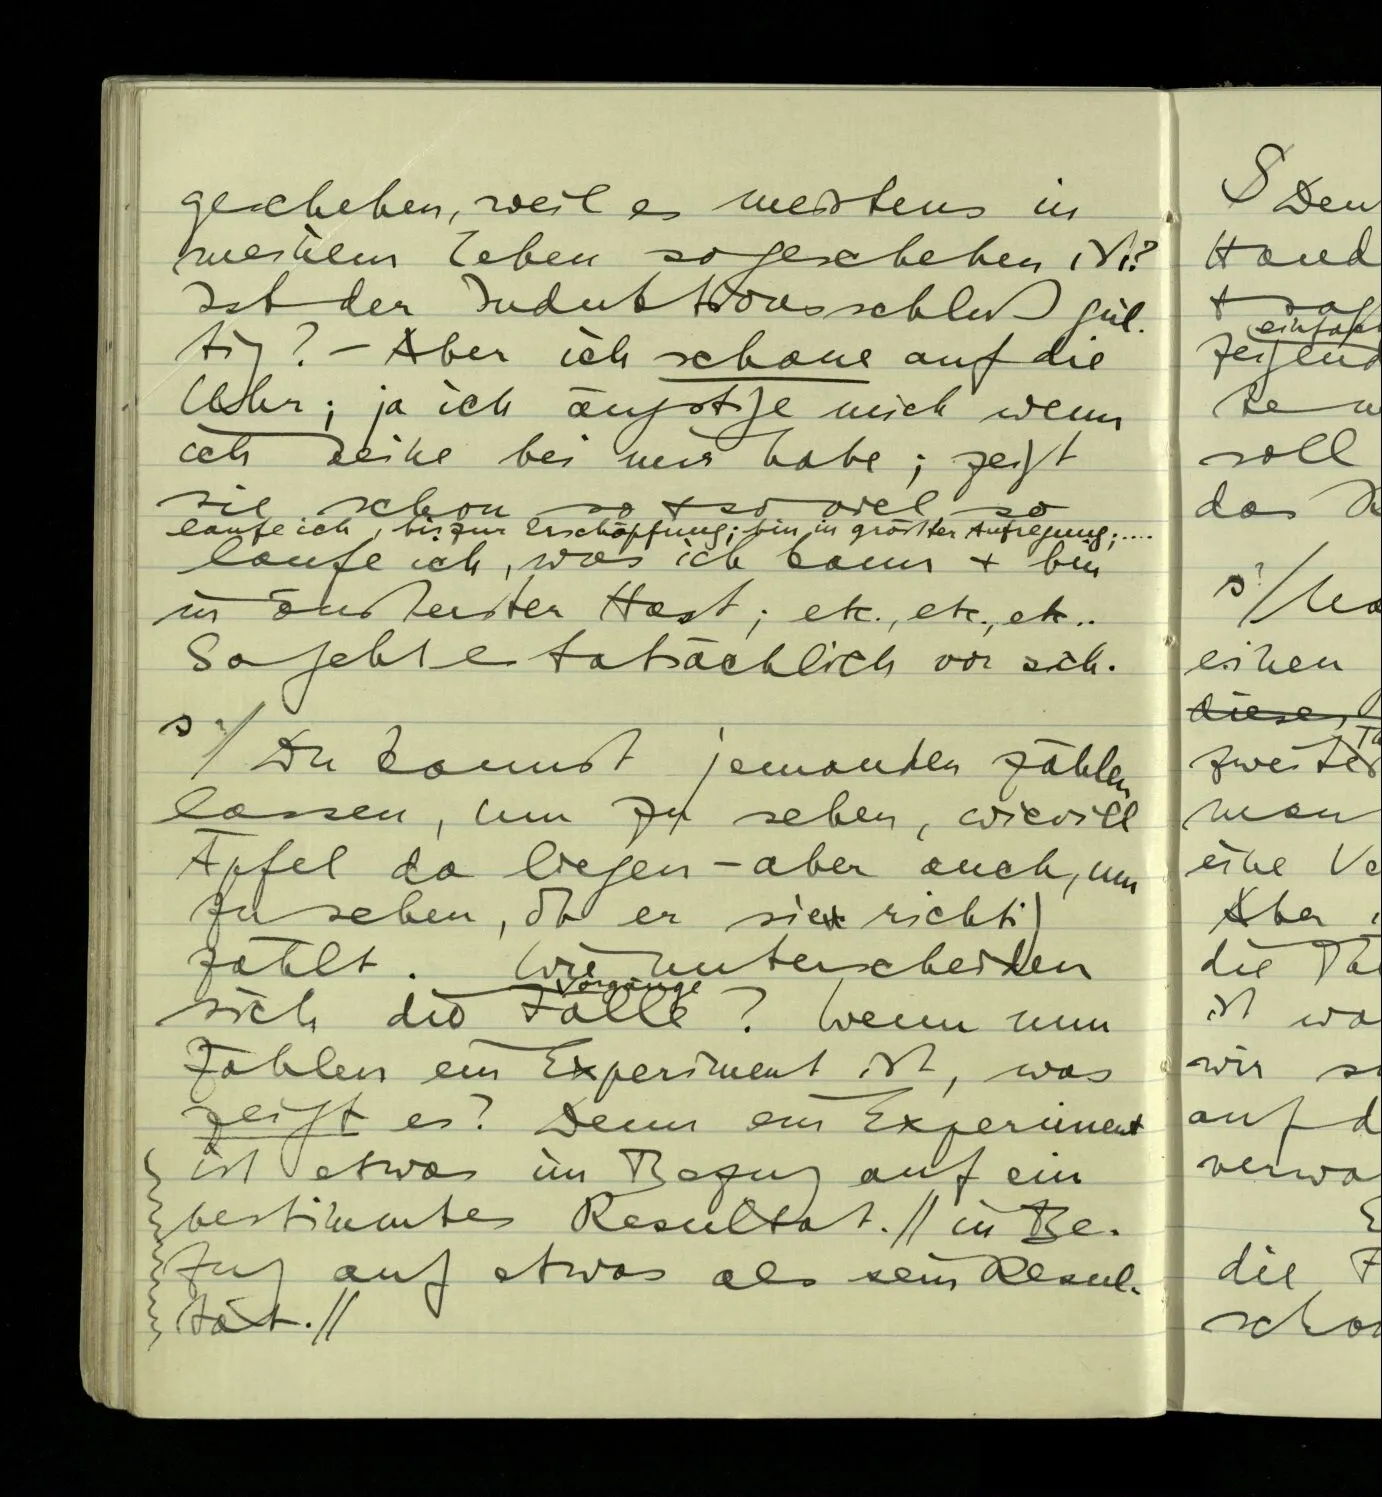 geschehen, weil es meistens in
meinem Leben so geschehen ist?
Ist der Induktionsschluß gül-
tig? – Aber ich schaue auf die
Uhr; ja ich ängstige mich wenn
ich keine bei mir habe; zeigt
sie schon so + so viel, so
laufe ich, bis zur Erschöpfung; bin in größter Aufregung; ....
laufe ich, was ich kann + bin
in äußerster Hast; etc., etc., etc..
So geht es tatsächlich vor sich.
s?/ Du kannst jemanden zählen
lassen, um zu sehen, wieviele
Äpfel da liegen – aber auch, um
zu sehen, ob er sie richtig
zählt. Wie unterscheiden
Vorgänge
sich die Fälle? Wenn nun
Zählen ein Experiment ist, was
zeigt es? Denn ein Experiment
ist etwas im Bezug auf ein
bestimmtes Resultat. // in Be-
zug auf etwas als sein Resul-
tat. //
S Den
Hand
+ sag
einfach
zeigend
soll
das
s?/
einen
diese,
zweites
man
eine Ve
Aber
die
ist wa
wir
auf d
verwa
E
die F
scho